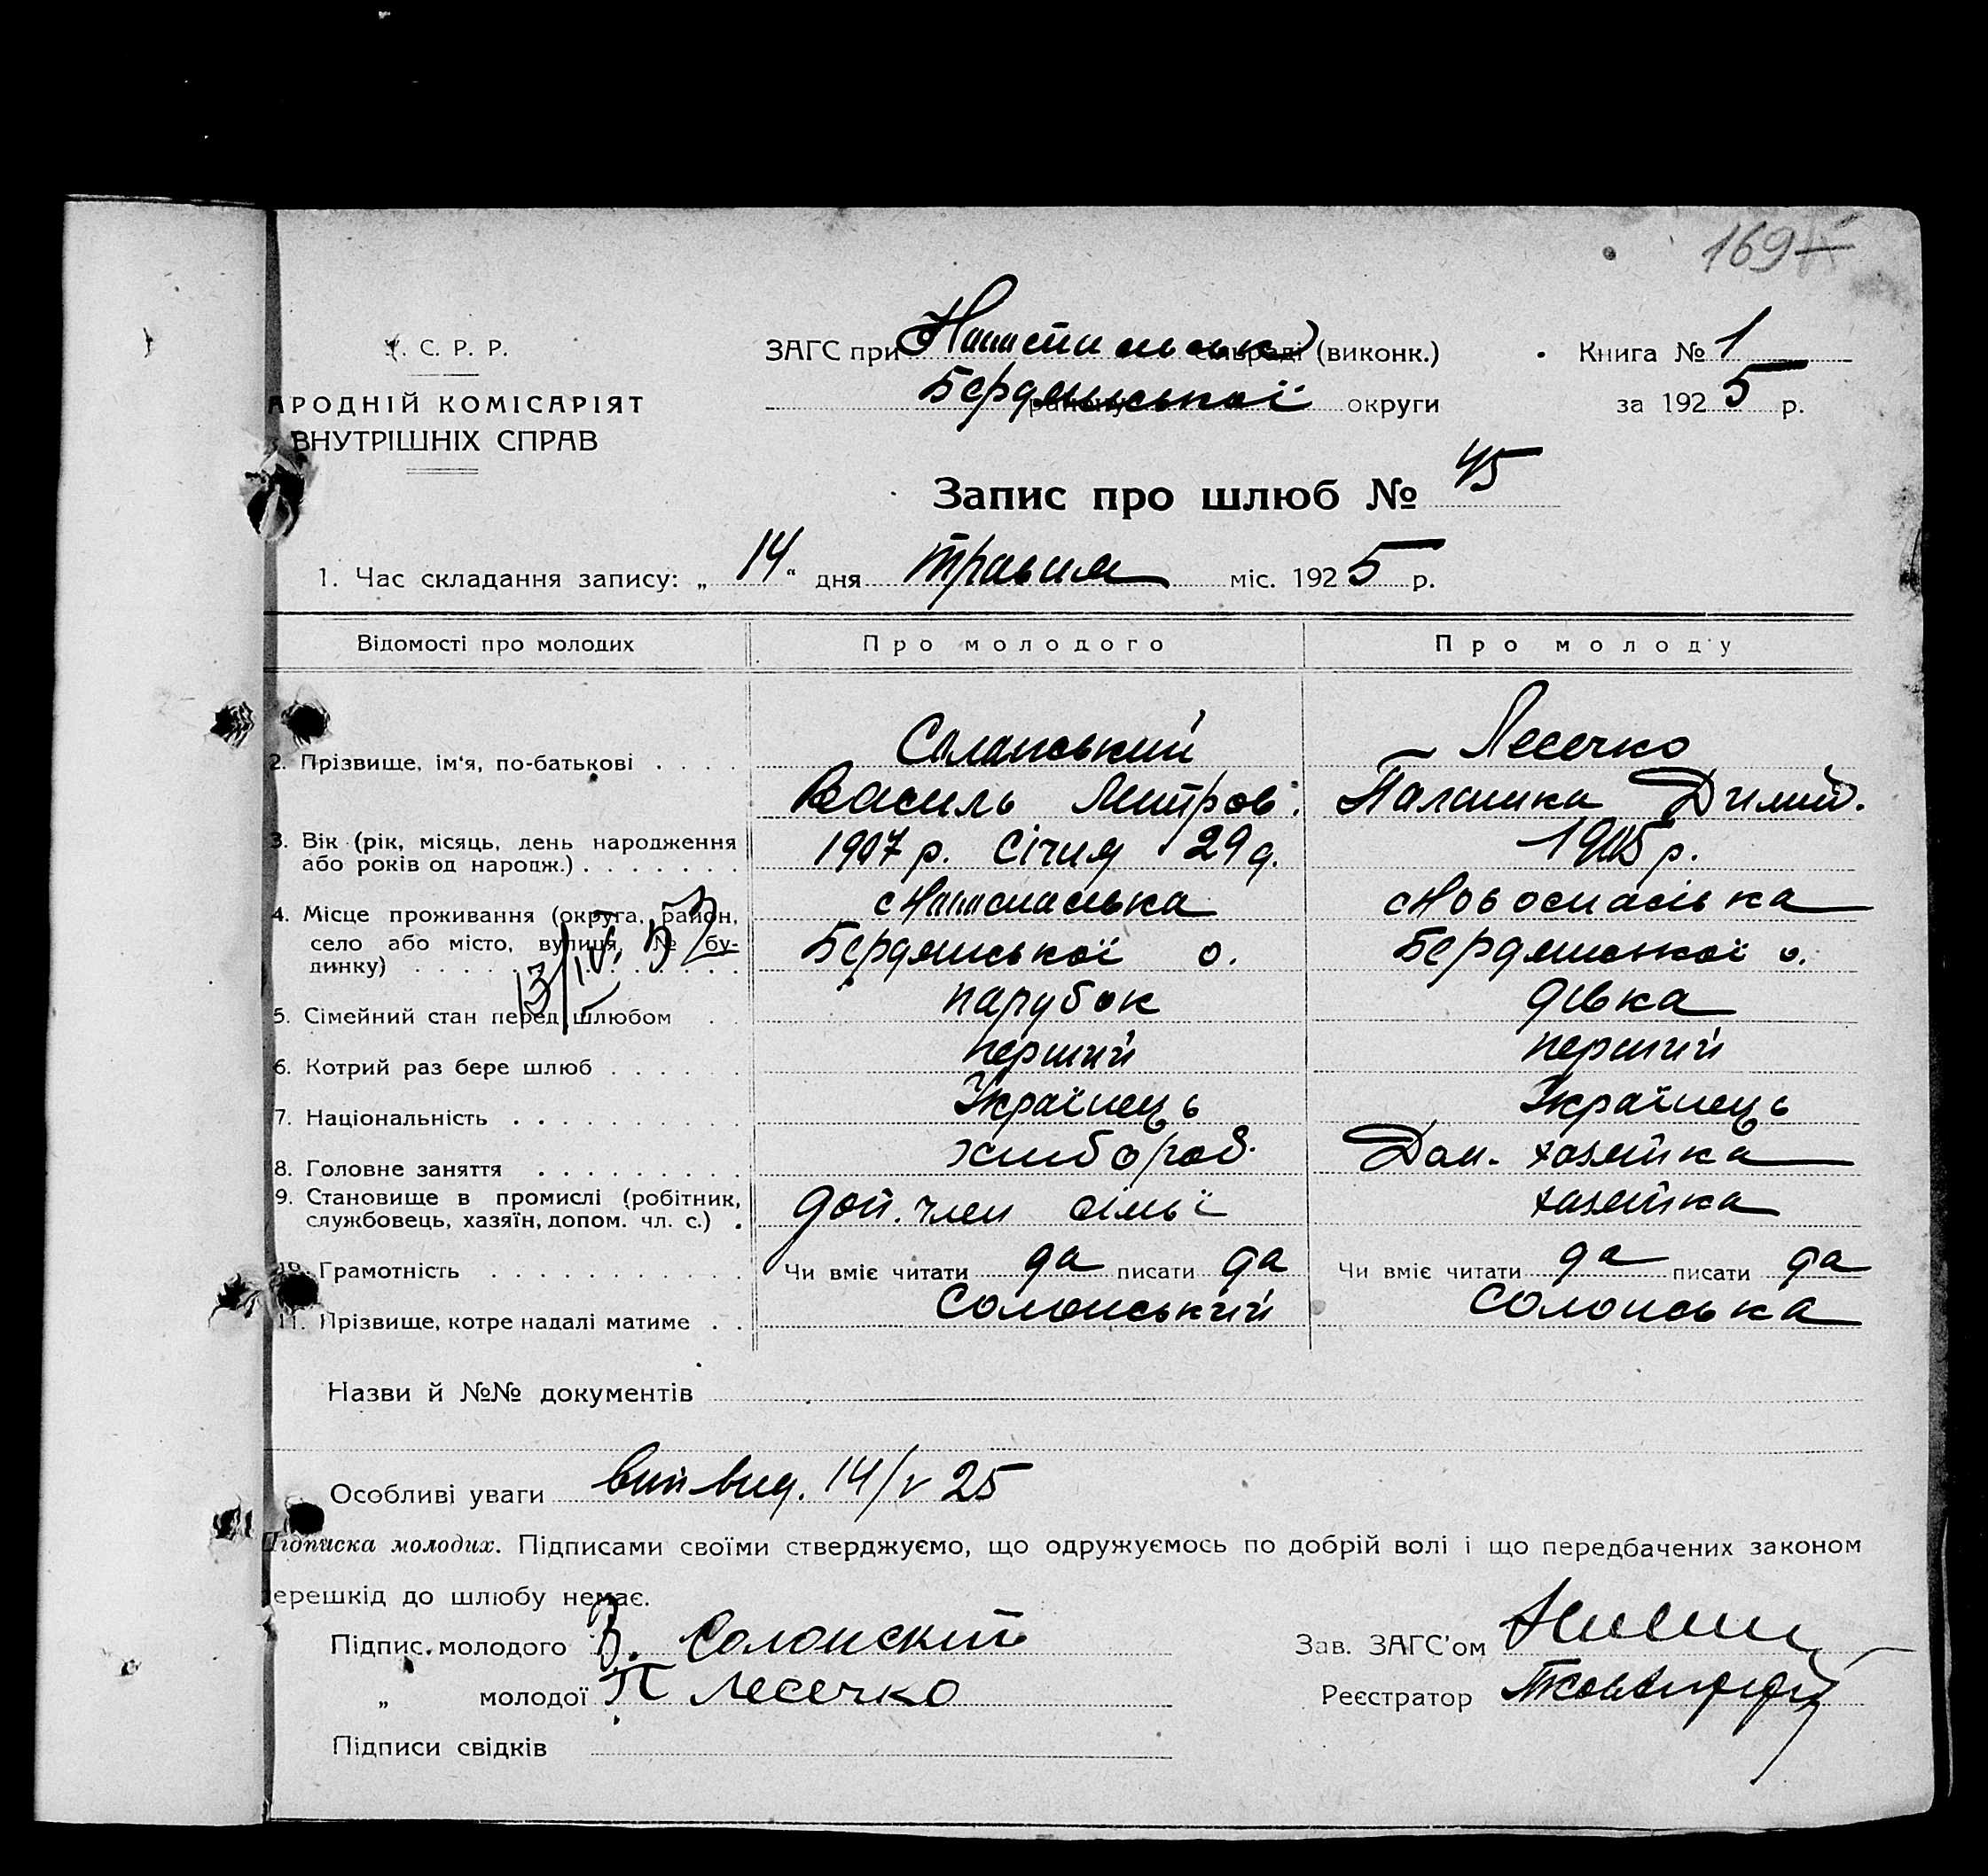 169
С. Р. Р.
АРОДНІЙ КОМІСАРІЯТ
ВНУТРІШНІХ СПРАВ
ЗАГС при (виконк.)
Бердянської округи
Книга № 1
за 1925 р.
Запис про шлюб № 45
1. Час складання запису: „14“ дня травня міс. 1925 р.
Відомості про молодих Про молодого Про молоду
2. Прізвище, ім'я, по-батькові Солонський Лесечко
Василь Митров. Палашка
3. Вік (рік, місяць, день народження або років од народж.) 1907 р. Січня 29 д. 1905 р.
4. Місце проживання (округа, район, село або місто, вулиця, № будинку) с Новоспасівка
Бердянської о. Бердянської о.
5. Сімейний стан перед шлюбом парубок дівка
6. Котрий раз бере шлюб перший перший
7. Національність Українець Українець
8. Головне заняття хлібороб. Дом. хазяйка
9. Становище в промислі (робітник, службовець, хазяїн, допом. чл. с.) доп. член сімьї хазяйка
10. Грамотність Чи вміє читати да писати да Чи вміє читати да писати да
11. Прізвище, котре надалі матиме Солонський Солонська
Назви й №№ документів
Особливі уваги вип вид. 14/V 25
Підписка молодих. Підписами своїми стверджуємо, що одружуємось по добрій волі і що передбачених законом
ерешкід до шлюбу немає.
Підпис молодого В. Солонский Зав. ЗАГС'ом
„ молодої П Лесечко Реєстратор
Підписи свідків